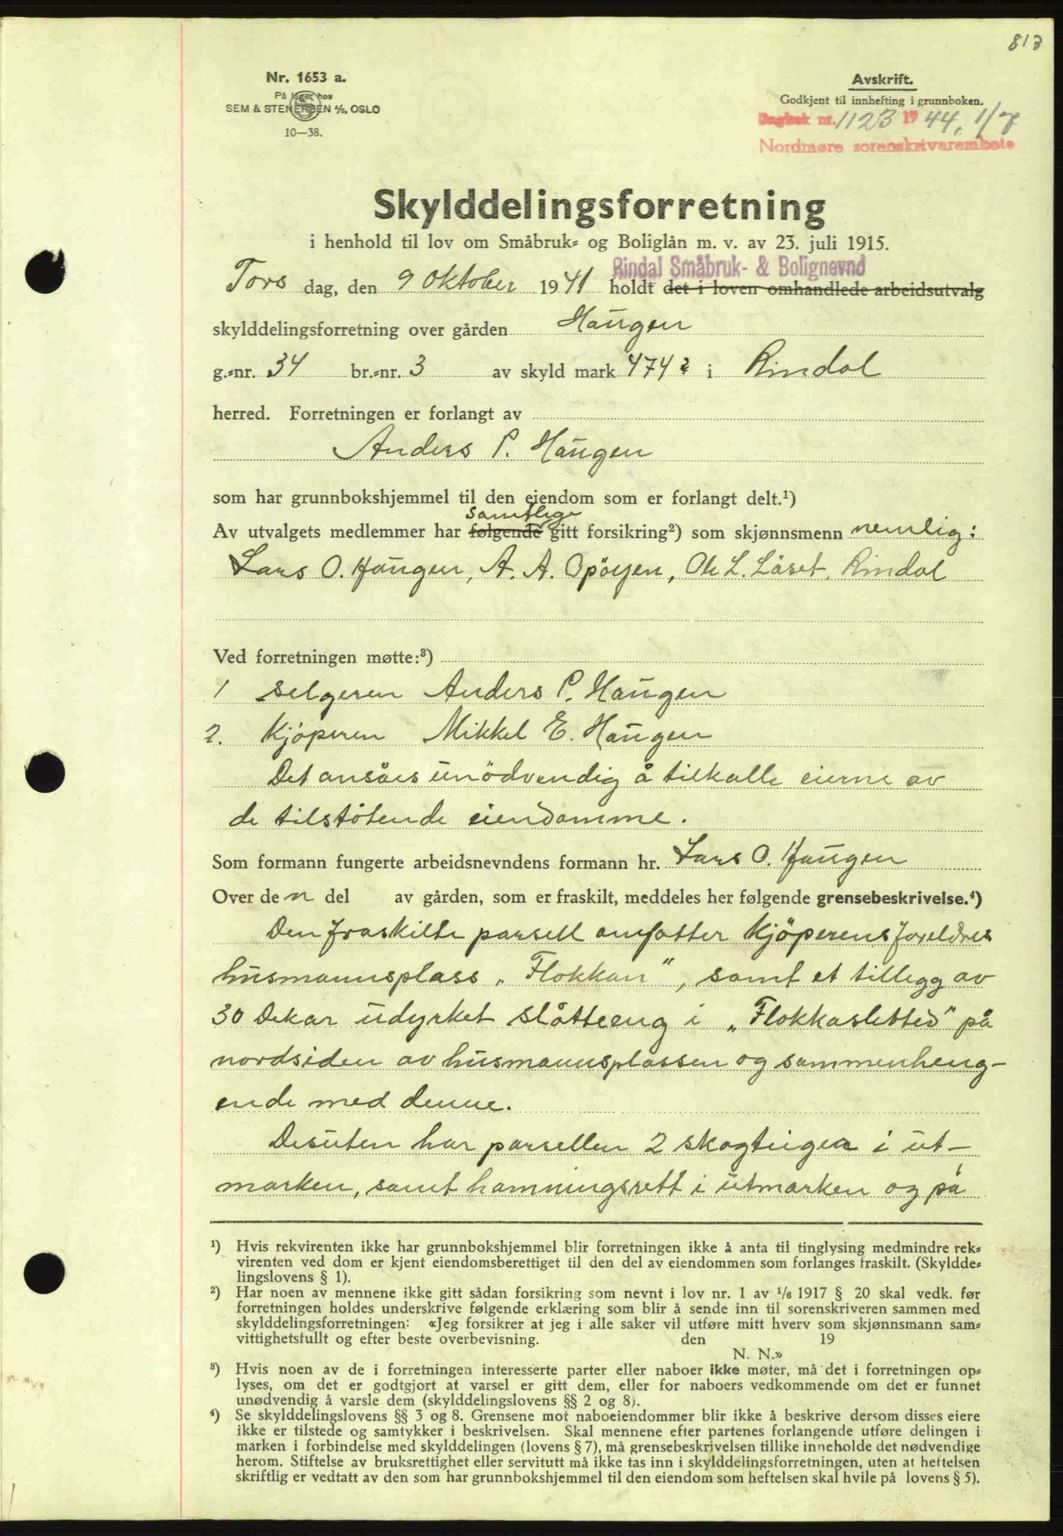 813
Nr. 1653 a.
På lager hos
SEM & STENERSEN A/S, OSLO
10—38.
Avskrift.
Godkjent til innhefting i grunnboken.
Dagbok nr. 1123 1944, 1/7
Nordmøre sorenskrivarembete
Skylddelingsforretning
i henhold til lov om Småbruk- og Boliglån m. v. av 23. juli 1915.
Rindal Småbruk- & Bolignevnd
Tors dag, den 9 Oktober 1941 holdt det i loven omhandlede arbeidsutvalg
skylddelingsforretning over gården Haugen
g.-nr. 34 br.-nr. 3 av skyld mark 4,74 i Rindal
herred. Forretningen er forlangt av
Anders P. Haugen
som har grunnbokshjemmel til den eiendom som er forlangt delt.¹)
samtlige
Av utvalgets medlemmer har følgende gitt forsikring²) som skjønnsmenn nemlig:
Lars O. Haugen, A. A. Opöyen, Ole L. Låset, Rindal
Ved forretningen møtte:³)
1 selgeren Anders P. Haugen
2. Kjöperen Mikkel E. Haugen
Det ansåes unödvendig å tilkalle eierne av
de tilstötende eiendomme.
Som formann fungerte arbeidsnevndens formann hr. Lars O. Haugen
Over den del av gården, som er fraskilt, meddeles her følgende grensebeskrivelse.⁴)
Den fraskilte parsell omfatter Kjöperens foreldres
husmannsplass „Flokkan“, samt et tillegg av
30 Dekar udyrket slåtteeng i „Flokkasletted“ på
nordsiden av husmannsplassen og sammenheng-
ende med denne.
Desuten har parsellen 2 skogteiger i ut-
marken, samt hamningsrett i utmarken og på
¹) Hvis rekvirenten ikke har grunnbokshjemmel blir forretningen ikke å anta til tinglysing medmindre rek-
virenten ved dom er kjent eiendomsberettiget til den del av eiendommen som forlanges fraskilt. (Skyldde-
lingslovens § 1).
²) Har noen av mennene ikke gitt sådan forsikring som nevnt i lov nr. 1 av ¹/₆ 1917 § 20 skal vedk. før
forretningen holdes underskrive følgende erklæring som blir å sende inn til sorenskriveren sammen med
skylddelingsforretningen: «Jeg forsikrer at jeg i alle saker vil utføre mitt hverv som skjønnsmann sam-
vittighetsfullt og efter beste overbevisning. den 19
N. N.»
³) Hvis noen av de i forretningen interesserte parter eller naboer ikke møter, må det i forretningen op-
lyses, om det er godtgjort at varsel er gitt dem, eller for naboers vedkommende om det er funnet
unødvendig å varsle dem (skylddelingslovens §§ 2 og 8).
⁴) Se skylddelingslovens §§ 3 og 8. Grensene mot naboeiendommer blir ikke å beskrive dersom disses eiere
ikke er tilstede og samtykker i beskrivelsen. Skal mennene efter partenes forlangende utføre delingen i
marken i forbindelse med skylddelingen (lovens § 7), må grensebeskrivelsen tillike inneholde det nødvendige
herom. Stiftelse av bruksrettighet eller servitutt må ikke tas inn i skylddelingsforretningen, uten at heftelsen
skriftlig er vedtatt av den som har grunnbokshjemmel til den eiendom som heftelsen skal hvile på lovens § 5).